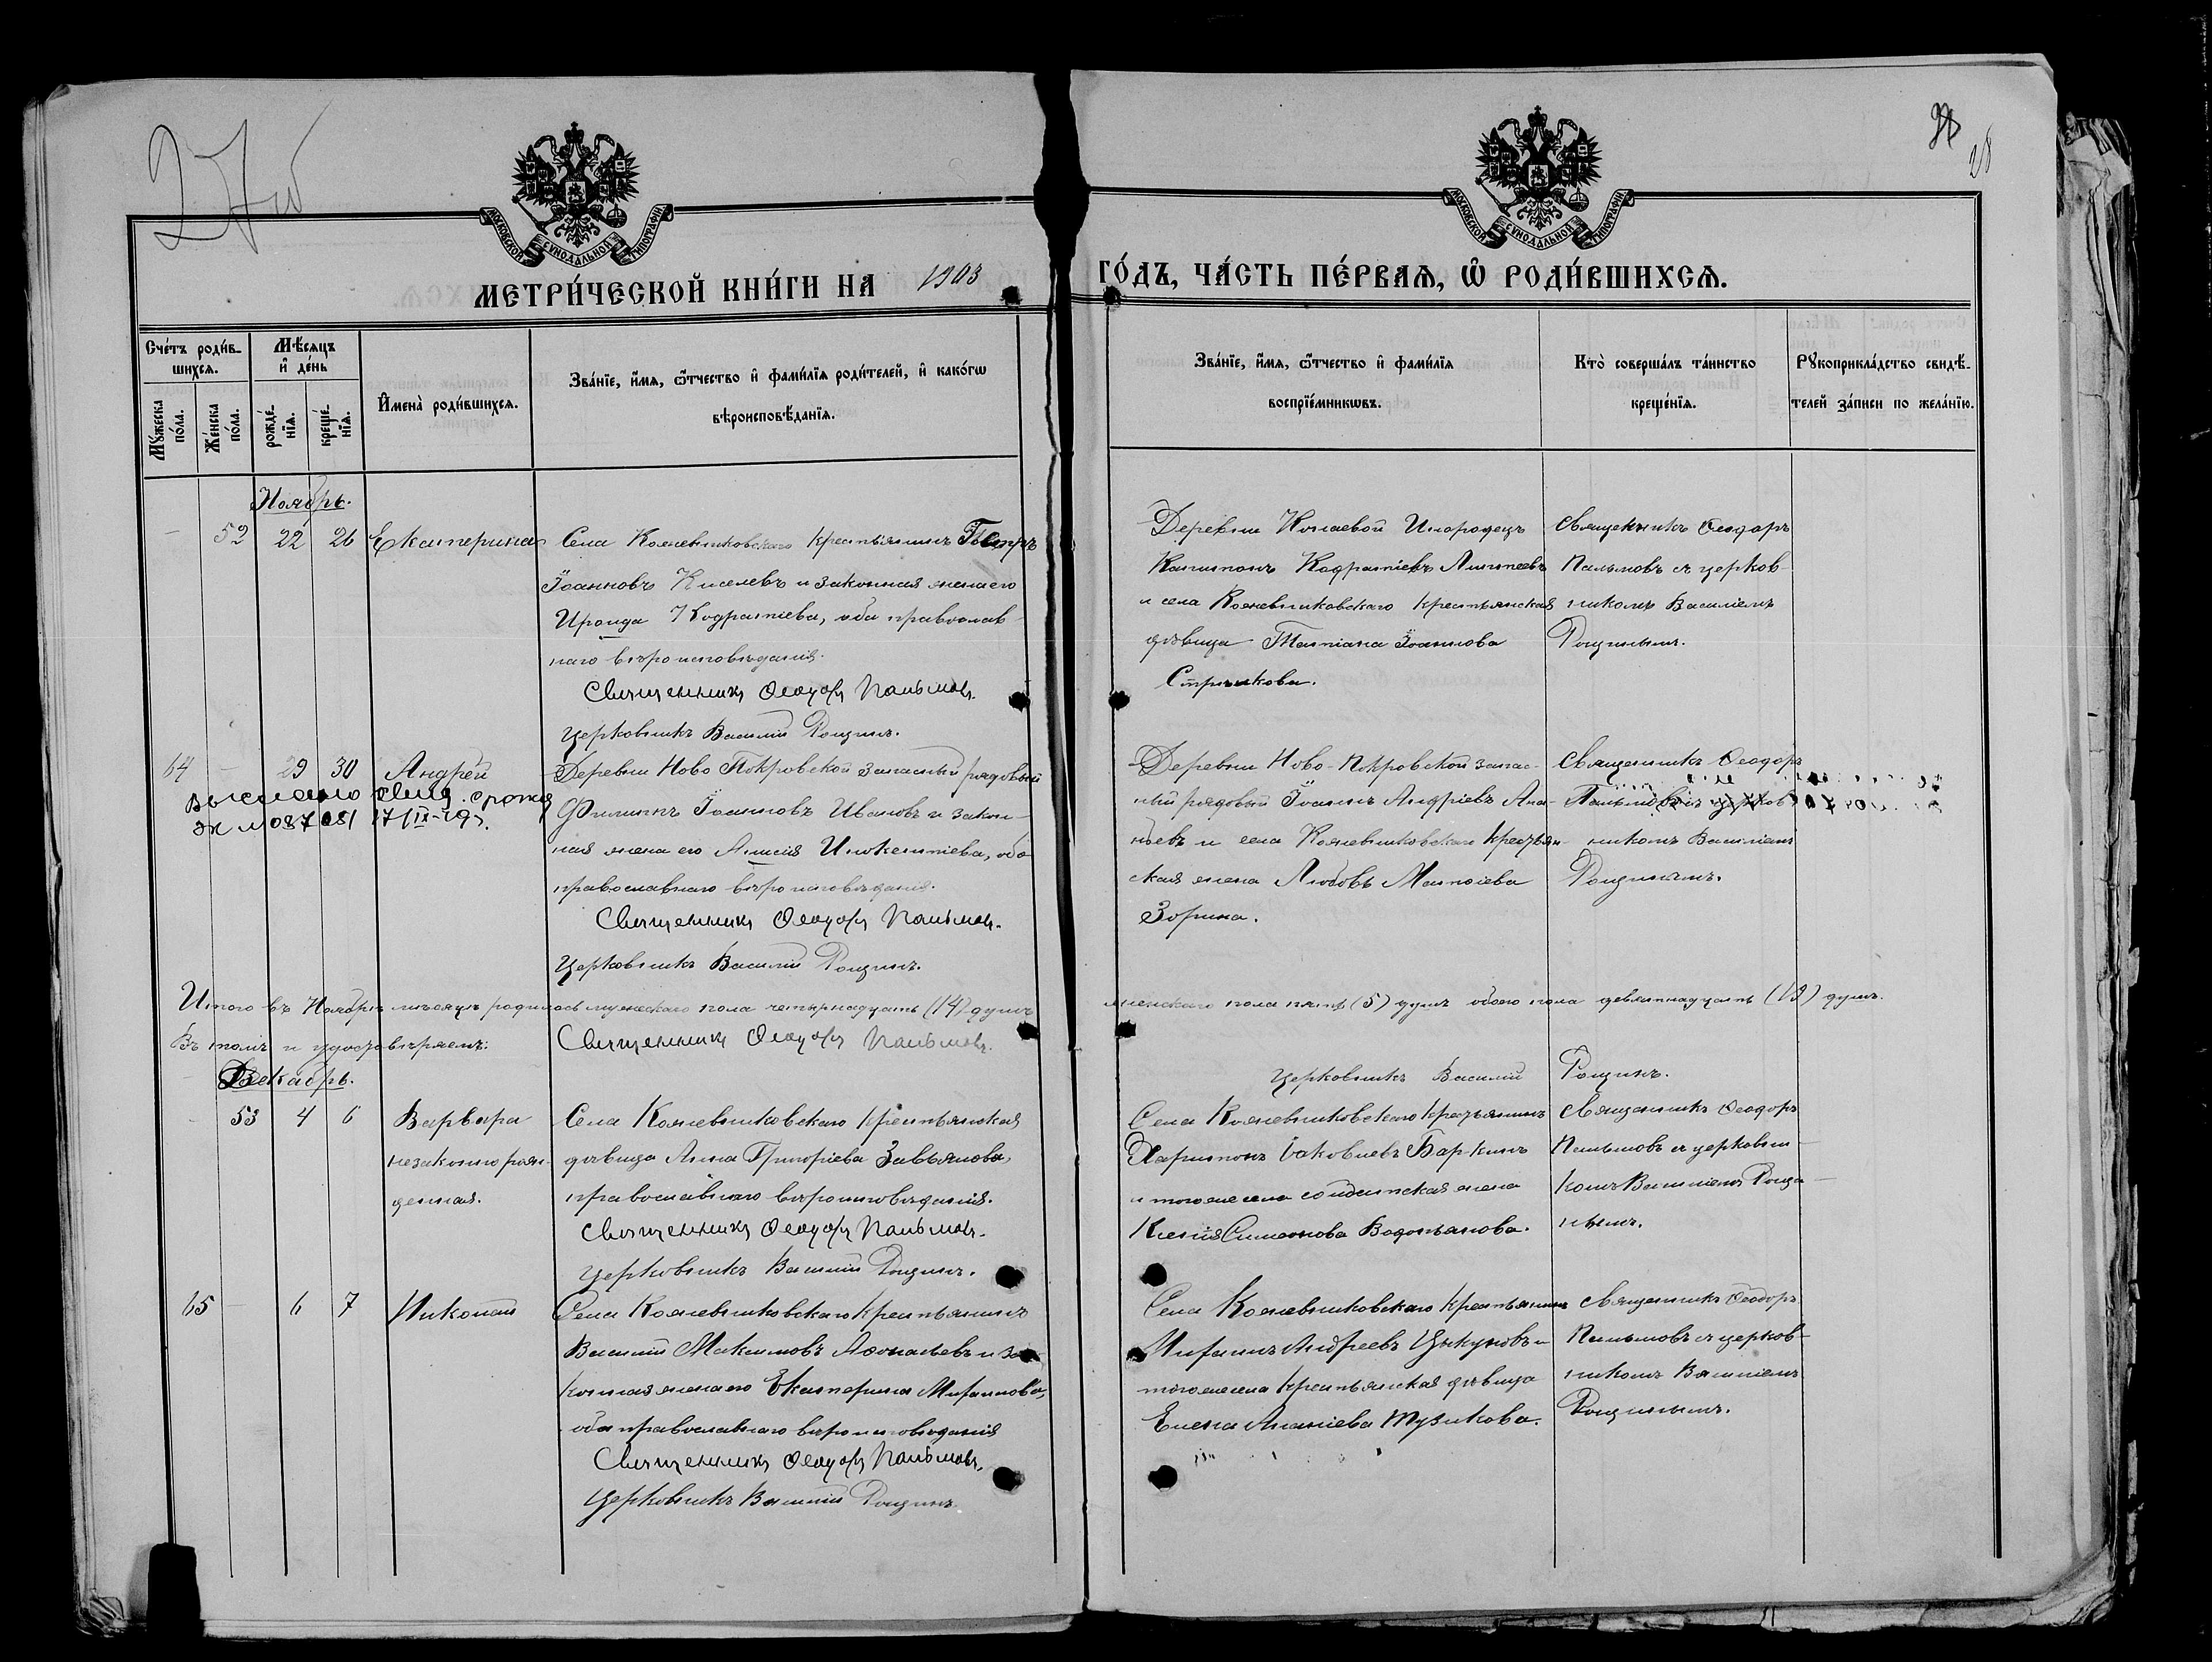 27 об
28
МОСКОВСКОЙ СѴНОДАЛЬНОЙ ТИПОГРАФІИ
МОСКОВСКОЙ СѴНОДАЛЬНОЙ ТИПОГРАФІИ
МЕТРИ́ЧЕСКОЙ КНИ́ГИ НА 1903 ГО́ДЪ, ЧА́СТЬ ПЕ́РВАѦ, Ѡ҆ РОДИ́ВШИХСѦ.
Сче́тъ роди́в-
шихсѧ.
Мꙋжеска по́ла.
Же́нска по́ла.
Мѣ́сѧцъ
и҆ де́нь
рожде́-
нїѧ.
креще́-
нїѧ.
И҆мена̀ роди́вшихсѧ.
Зва́нїе, и҆́мѧ, ѻ҆́тчество и҆ фами́лїѧ роди́телей, и҆ како́гѡ
вѣроисповѣ́данїѧ.
Зва́нїе, и҆́мѧ, ѻ҆́тчество и҆ фами́лїѧ
воспрїе́мникѡвъ.
Кто̀ соверша́лъ та́инство
креще́нїѧ.
Рꙋкоприкла́дство свидѣ́-
телей за́писи по жела́нїю.
Ноябрь.
- 52 22 26 Екатерина
Села Кожевниковскаго крестьянинъ Петръ
Іоанновъ Киселевъ и законная жена его
Ираида Кодратіева, оба православ-
наго вѣроисповѣданія.
Священникъ Ѳеодоръ Пальмовъ.
Церковникъ Василій Рощинъ.
Деревни Инородецъ
Капитонъ Кодратіевъ
и села Кожевниковскаго крестьянская
дѣвица Татіана Іоаннова
Стрѣлкова.
Священникъ Ѳеодоръ
Пальмовъ съ церков-
никомъ Василіемъ
Рощинымъ.
64 - 29 30 Андрей
выслано свид. о рожд
17/IX-49 г.
Деревни Ново Покровской запасный рядовый
Филиппъ Іоанновъ Ивановъ и закон-
ная жена его Анисія Инокентіева, оба
православнаго вѣроисповѣданія.
Священникъ Ѳеодоръ Пальмовъ.
Церковникъ Василій Рощинъ.
Деревни Ново-Покровской запас-
ный рядовый Іоаннъ Андріевъ Ана-
ньевъ и села Кожевниковскаго крестьян-
ская жена Любовь Матѳіева
Зорина.
Священникъ Ѳеодоръ
Пальмовъ съ церков-
никомъ Василіемъ
Рощинымъ.
Итого въ Ноябрѣ мѣсяцѣ родилось мужескаго пола четырнадцать (14) душъ женскаго пола пять (5) душъ обоего пола девятнадцать (19) душъ.
Въ томъ и удостовѣряемъ: Священникъ Ѳеодоръ Пальмовъ.
Церковникъ Василій Рощинъ.
Декабрь.
- 53 4 6 Варвара
незаконно рож-
денная.
Села Кожевниковскаго крестьянская
дѣвица Анна Григоріева Завьялова,
православнаго вѣроисповѣданія.
Священникъ Ѳеодоръ Пальмовъ.
Церковникъ Василій Рощинъ.
Села Кожевниковскаго крестьянинъ
Харитонъ Іаковлевъ Баркинъ
и того же села солдатская жена
Ксенія Симеонова Водопьянова.
Священникъ Ѳеодоръ
Пальмовъ съ церковни-
комъ Василіемъ Рощи-
нымъ.
65 - 6 7 Николай
Села Кожевниковскаго крестьянинъ
Василій Максимовъ Аѳонасьевъ и за-
конная жена его Екатерина Миранова,
оба православнаго вѣроисповѣданія
Священникъ Ѳеодоръ Пальмовъ.
Церковникъ Василій Рощинъ.
Села Кожевниковскаго крестьянинъ
Миранъ Андреевъ Цыкуновъ и
того же села крестьянская дѣвица
Елена Ананіева Тузикова.
Священникъ Ѳеодоръ
Пальмовъ съ церков-
никомъ Василіемъ
Рощинымъ.